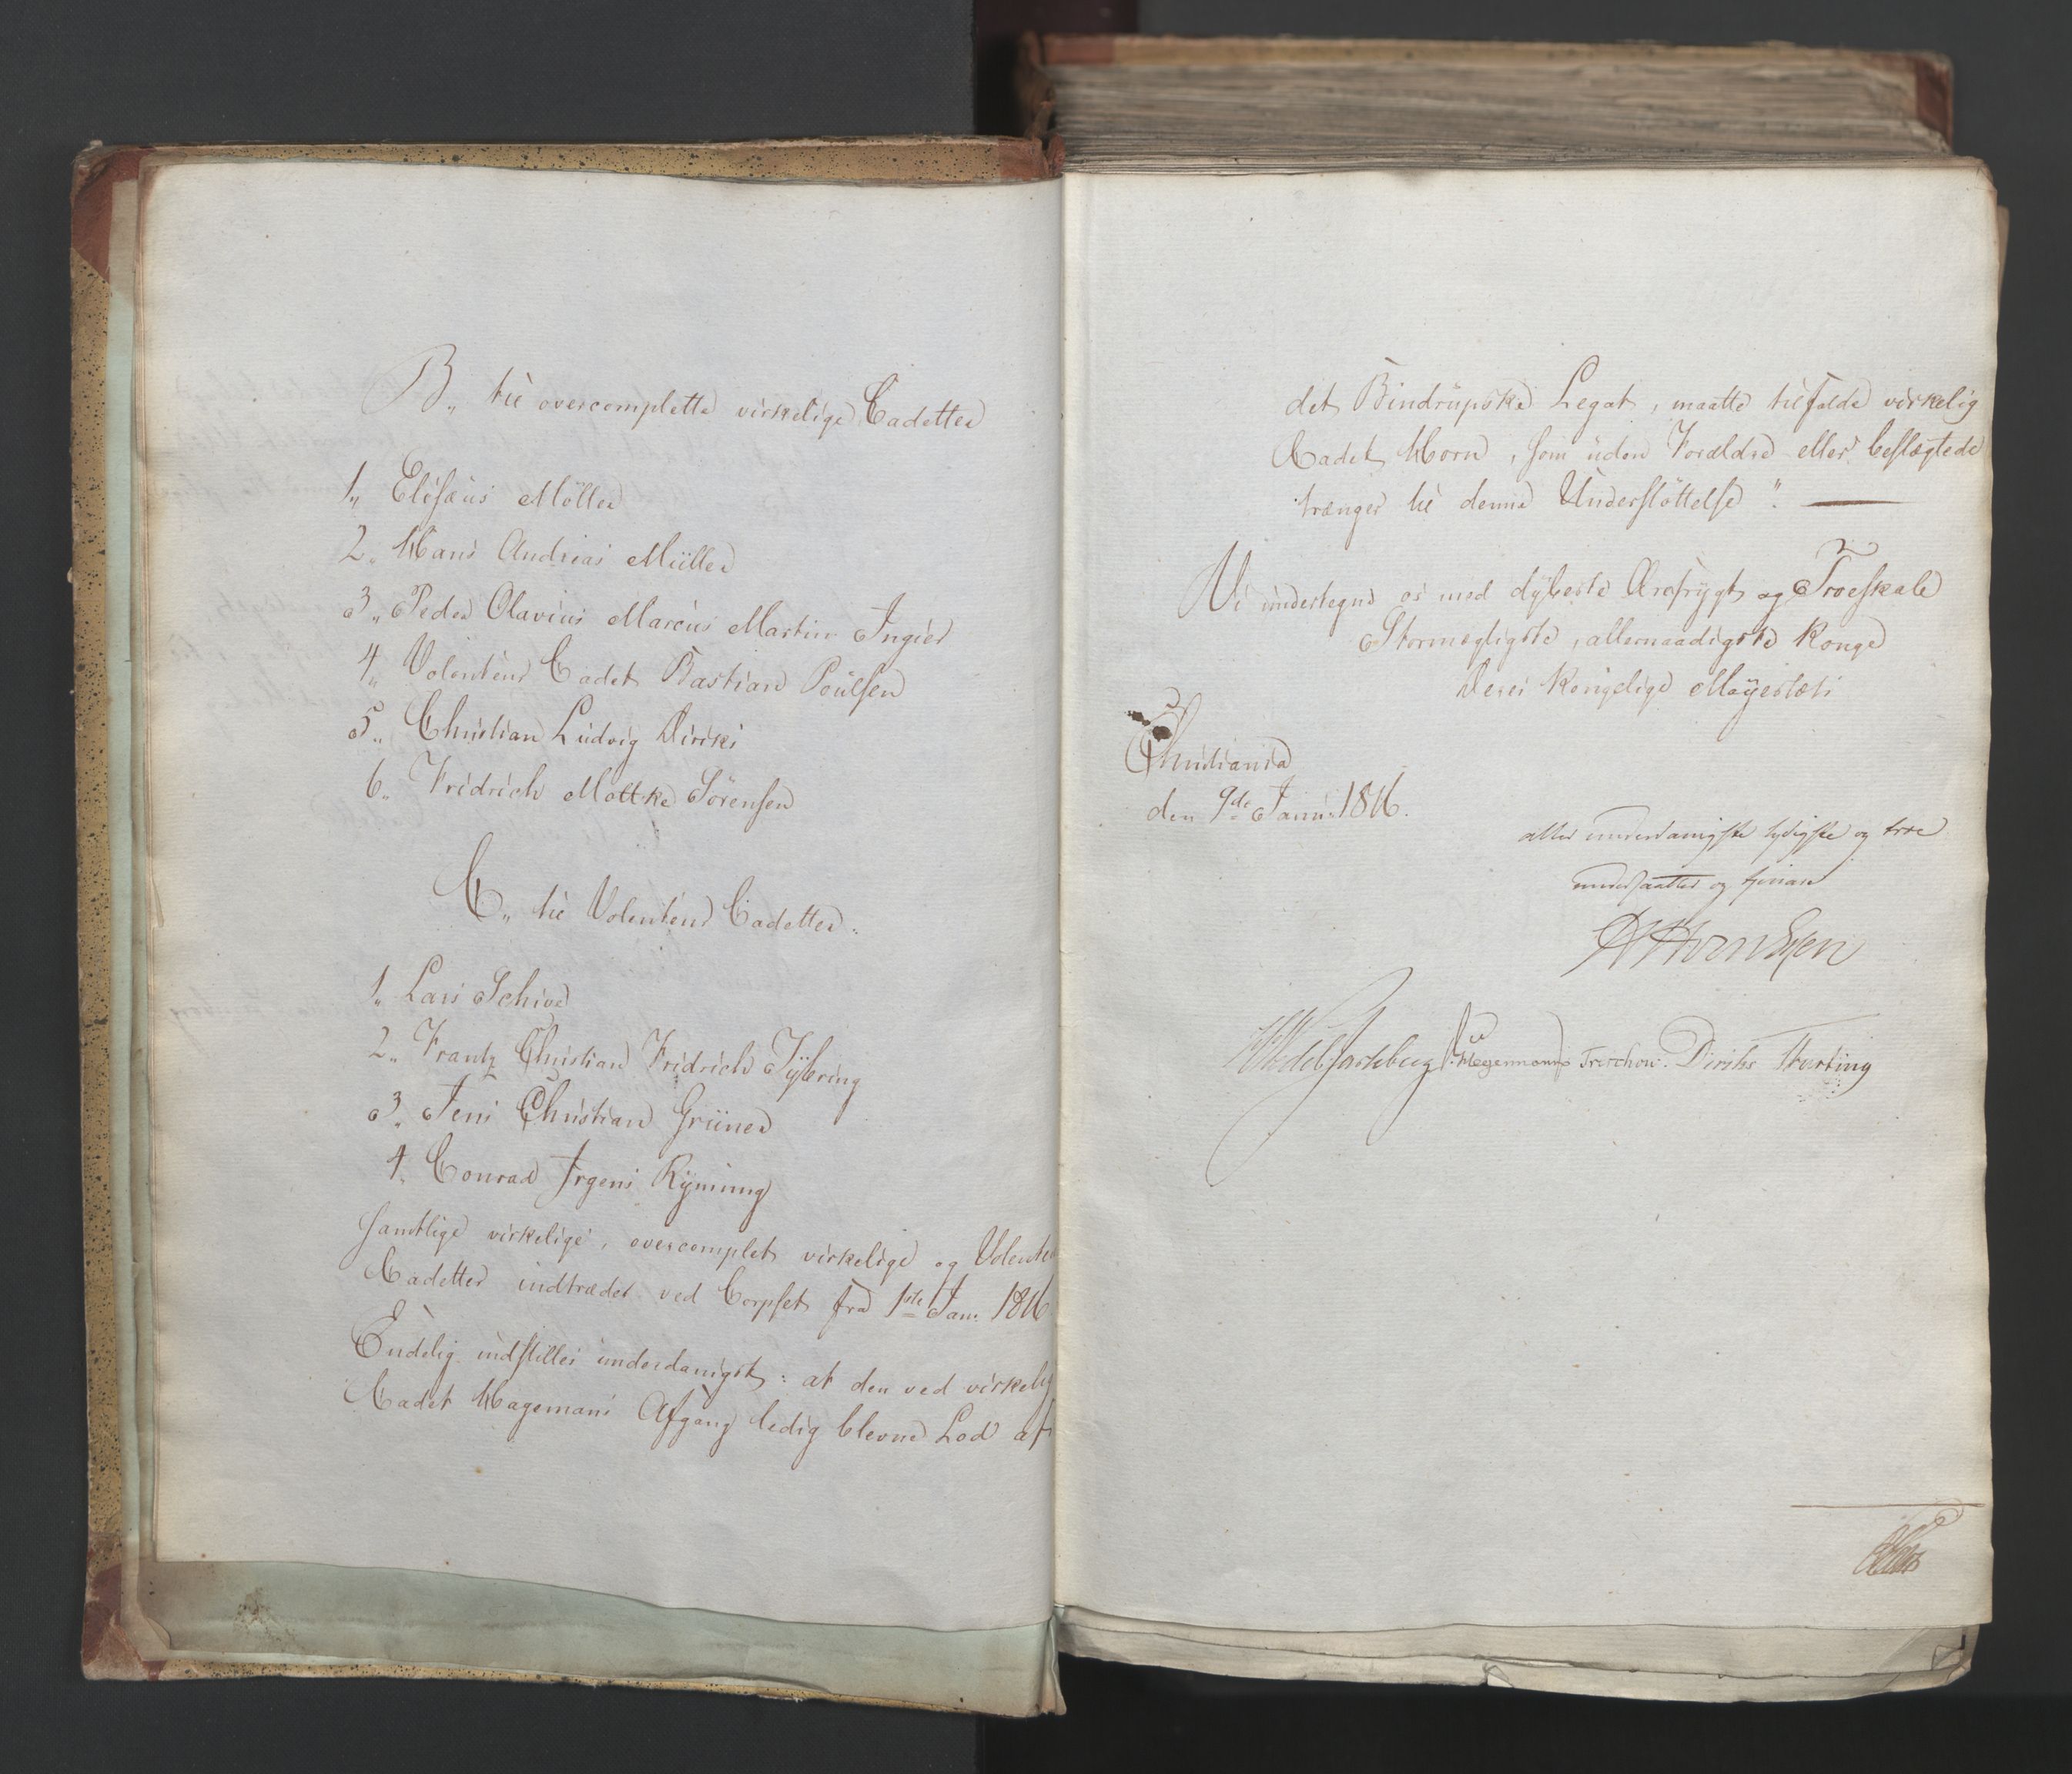 B,, til overcomplette virkelige Cadetter
1,, Elisæus Möller
2,, Hans Andreas Müller
3,, Peder Olavius Marcus Martin Ingier
4,, Volontair Cadet Bastian Poulsen
5,, Christian Ludvig Diriks
6,, Fridrich Moltke Sörensen
C,, til Volentair Cadetter:
1,, Lars Schive
2,, Frantz Christian Fridrich Tybring
3,, Jens Christian Grüner
4,, Conrad Irgens Rynning
samtlige virkelige, overcomplet virkelige og
Cadetter indtræder ved Corpset fra 1ste Jan: 1816
Endelig indstilles underdanigst: at den ved virkelig
Cadet Hagemans Afgang ledig blevne Lod af
det Bindrupske Legat, maatte tilfalde virkelig
Cadet Horn, som uden Forældre eller beslægtede
trænger til denne Understöttelse". —
Vi undertegne os med dybeste Ærefrygt og Troeskab
Stormægtigste, allernaadigste Konge
Deres Kongelige Mayestæts
Christiania
den 9de Janu: 1816.
aller underdanigste lydigste og troe
undersaatter og tjenare
Wedel Jarlsberg Hegermann Treschow. Diriks